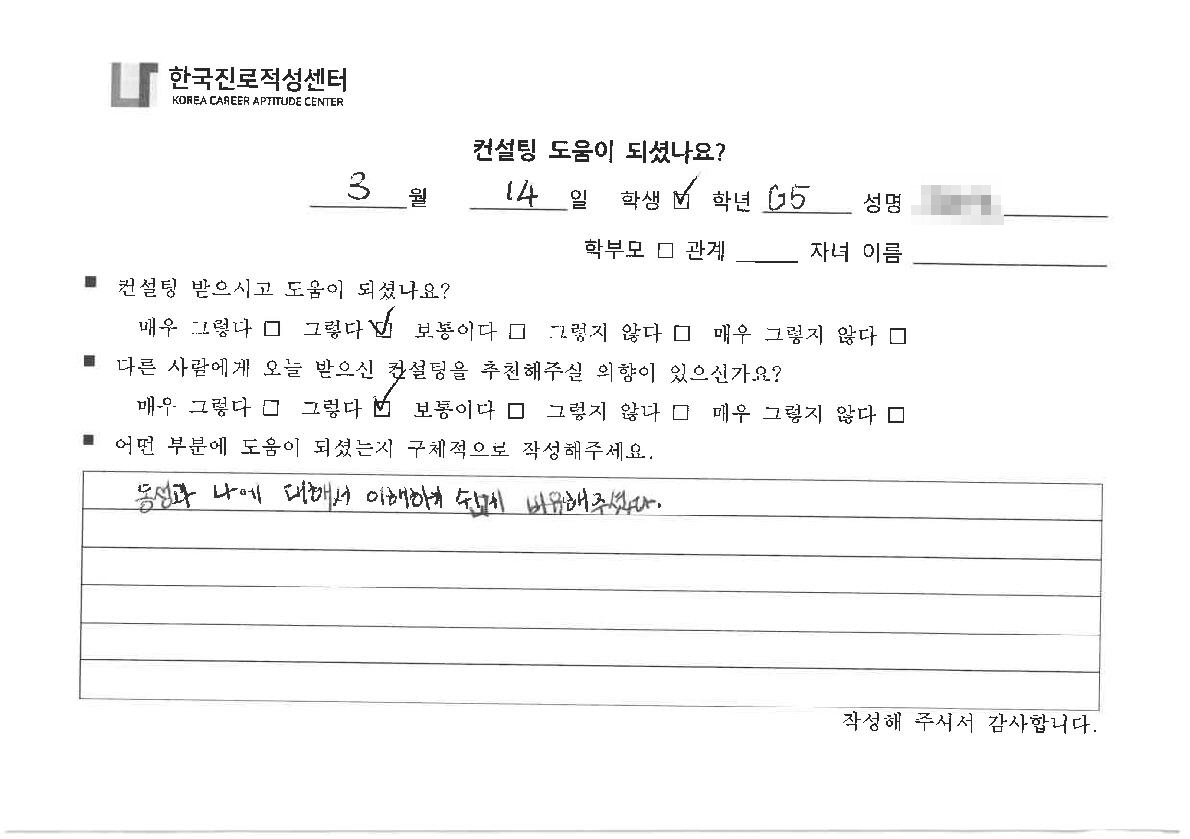 한국진로적성센터
KOREA CAREER APTITUDE CENTER
컨설팅 도움이 되셨나요?
3 월 14 일 학생 ☑ 학년 G5 성명
학부모 □ 관계 자녀 이름
■ 컨설팅 받으시고 도움이 되셨나요?
매우 그렇다 □ 그렇다 ☑ 보통이다 □ 그렇지 않다 □ 매우 그렇지 않다 □
■ 다른 사람에게 오늘 받으신 컨설팅을 추천해주실 의향이 있으신가요?
매우 그렇다 □ 그렇다 ☑ 보통이다 □ 그렇지 않다 □ 매우 그렇지 않다 □
■ 어떤 부분에 도움이 되셨는지 구체적으로 작성해주세요.
나에 대해서 이해하기 쉽게 비유해주셨다.
작성해 주셔서 감사합니다.